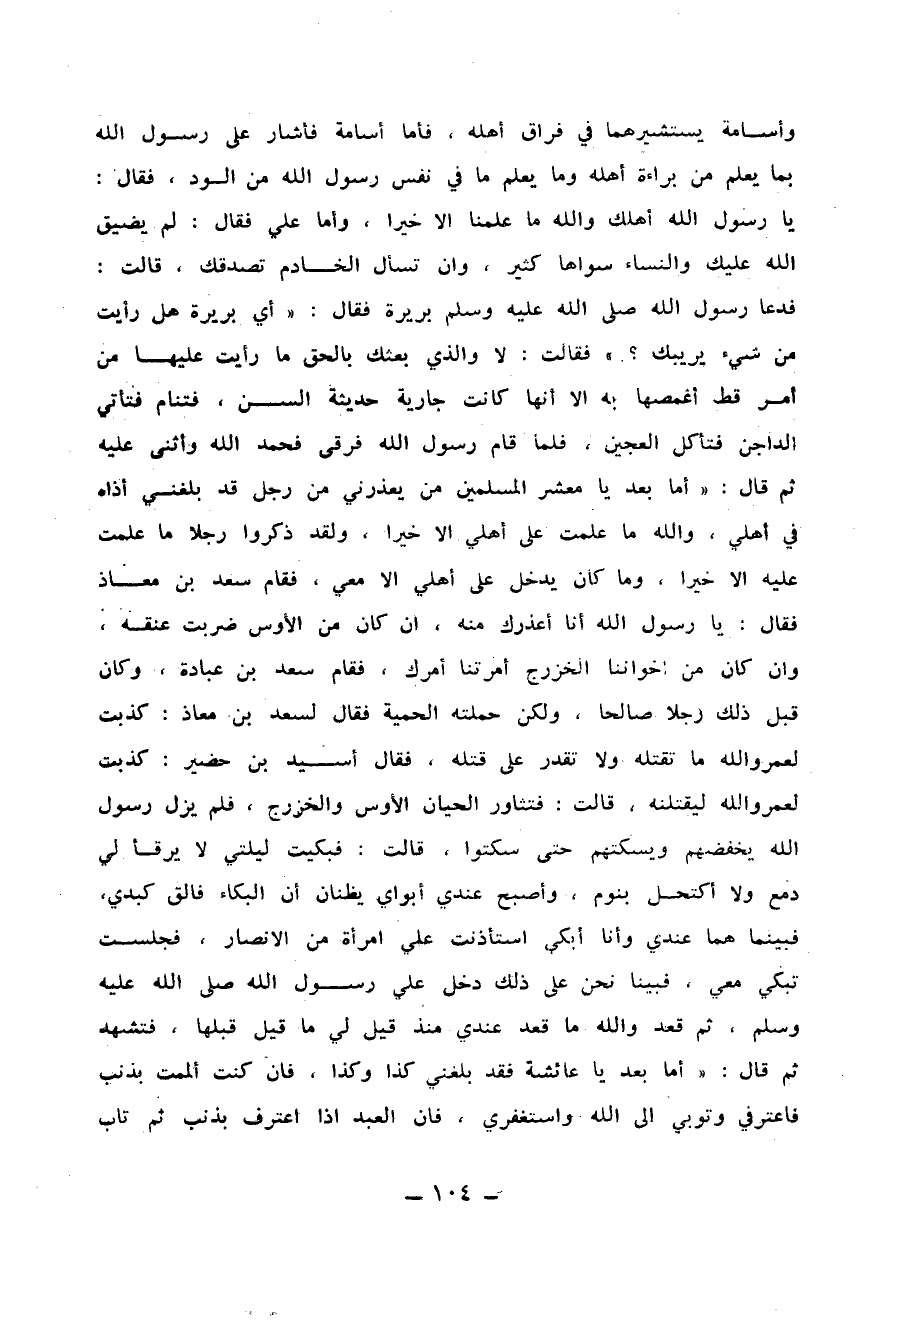 وأســامة يستشيرهما في فراق أهله ، فأما أسامة فأشار على رسـول الله
بما يعلم من براءة أهله وما يعلم ما في نفس رسول الله من الـود ، فقال :
يا رسول الله أهلك والله ما علمنا الا خيرا ، وأما علي فقال : لم يضيق
الله عليك والنساء سواها كثير ، وان تسأل الخـادم تصدقك ، قالت :
فدعا رسول الله صلى الله عليه وسلم بريرة فقال : « أي بريرة هل رأيت
من شيء يريبك ؟ » فقالت : لا والذي بعثك بالحق ما رأيت عليهـا من
أمـر قط أغمصها به الا أنها كانت جارية حديثة الســن ، فتنام فتأتي
الداجن فتأكل العجين ، فلما قام رسول الله فرقي فحمد الله وأثنى عليه
ثم قال : « أما بعد يا معشر المسلمين من يعذرني من رجل قد بلغنـي أذاه
في أهلي ، والله ما علمت على أهلي الا خيرا ، ولقد ذكروا رجلا ما علمت
عليه الا خيرا ، وما كان يدخل على أهلي الا معي ، فقام سعد بن معـاذ
فقال : يا رسول الله أنا أعذرك منه ، ان كان من الأوس ضربت عنقـه ،
وان كان من إخواننا الخزرج أمرتنا أمرك ، فقام سعد بن عبادة ، وكان
قبل ذلك رجلا صالحا ، ولكن حملته الحمية فقال لسعد بن معاذ : كذبت
لعمروالله ما تقتله ولا تقدر على قتله ، فقال أســيد بن حضير : كذبت
لعمروالله ليقتلنه ، قالت : فتثاور الحيان الأوس والخزرج ، فلم يزل رسول
الله يخفضهم ويسكتهم حتى سكتوا ، قالت : فبكيت ليلتي لا يرقـأ لي
دمع ولا أكتحـل بنوم ، وأصبح عندي أبواي يظنان أن البكاء فالق كبدي،
فبينما هما عندي وأنا أبكي استأذنت علي امرأة من الانصار ، فجلسـت
تبكي معي ، فبينا نحن على ذلك دخل علي رســول الله صلى الله عليه
وسلم ، ثم قعد والله ما قعد عندي منذ قيل لي ما قيل قبلها ، فتشهد
ثم قال : « أما بعد يا عائشة فقد بلغني كذا وكذا ، فان كنت ألمت بذنب
فاعترفي وتوبي الى الله واستغفري ، فان العبد اذا اعترف بذنب ثم تاب
– ١٠٤ –